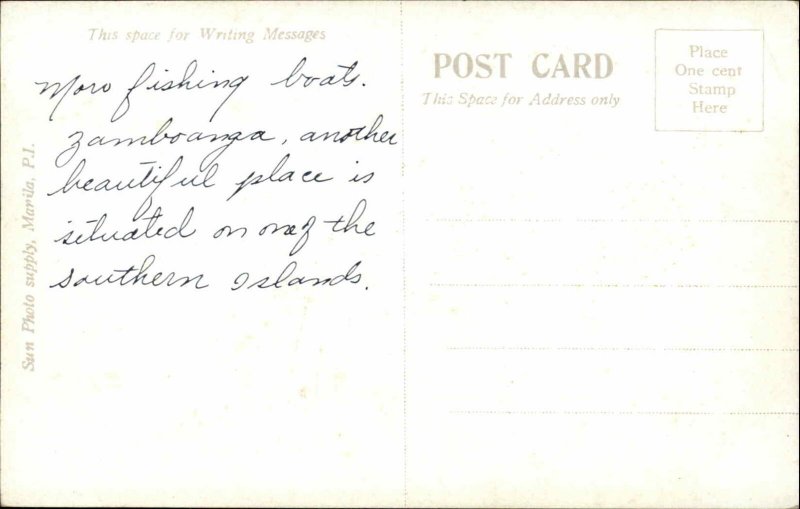 This space for Writing Messages
Moro fishing boats.
Zamboanga, another
beautiful place is
situated on one of the
southern Islands.
Sun Photo supply, Manila, P.I.
POST CARD
This Space for Address only
Place
One cent
Stamp
Here